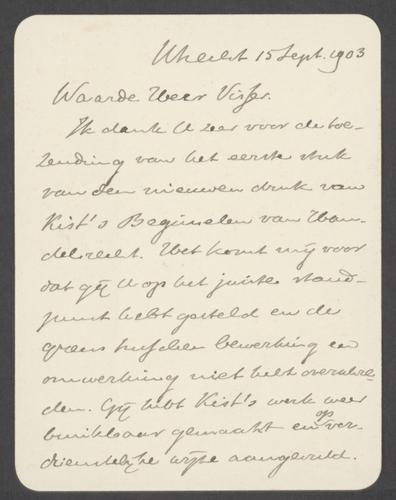 Utrecht 15 Sept. 1903
Waarde Heer Visser.
Ik dank U zeer voor de toe-
zending van het eerste stuk
van den nieuwen druk van
Kist's Beginselen van Han-
delsrecht. Het komt mij voor
dat gij U op het juiste stand-
punt hebt gesteld en de
grens tusschen bewerking en
omwerking niet hebt overschre-
den. Gij hebt Kist's werk weer
bruikbaar gemaakt en op ver-
dienstelijke wijze aangevuld.